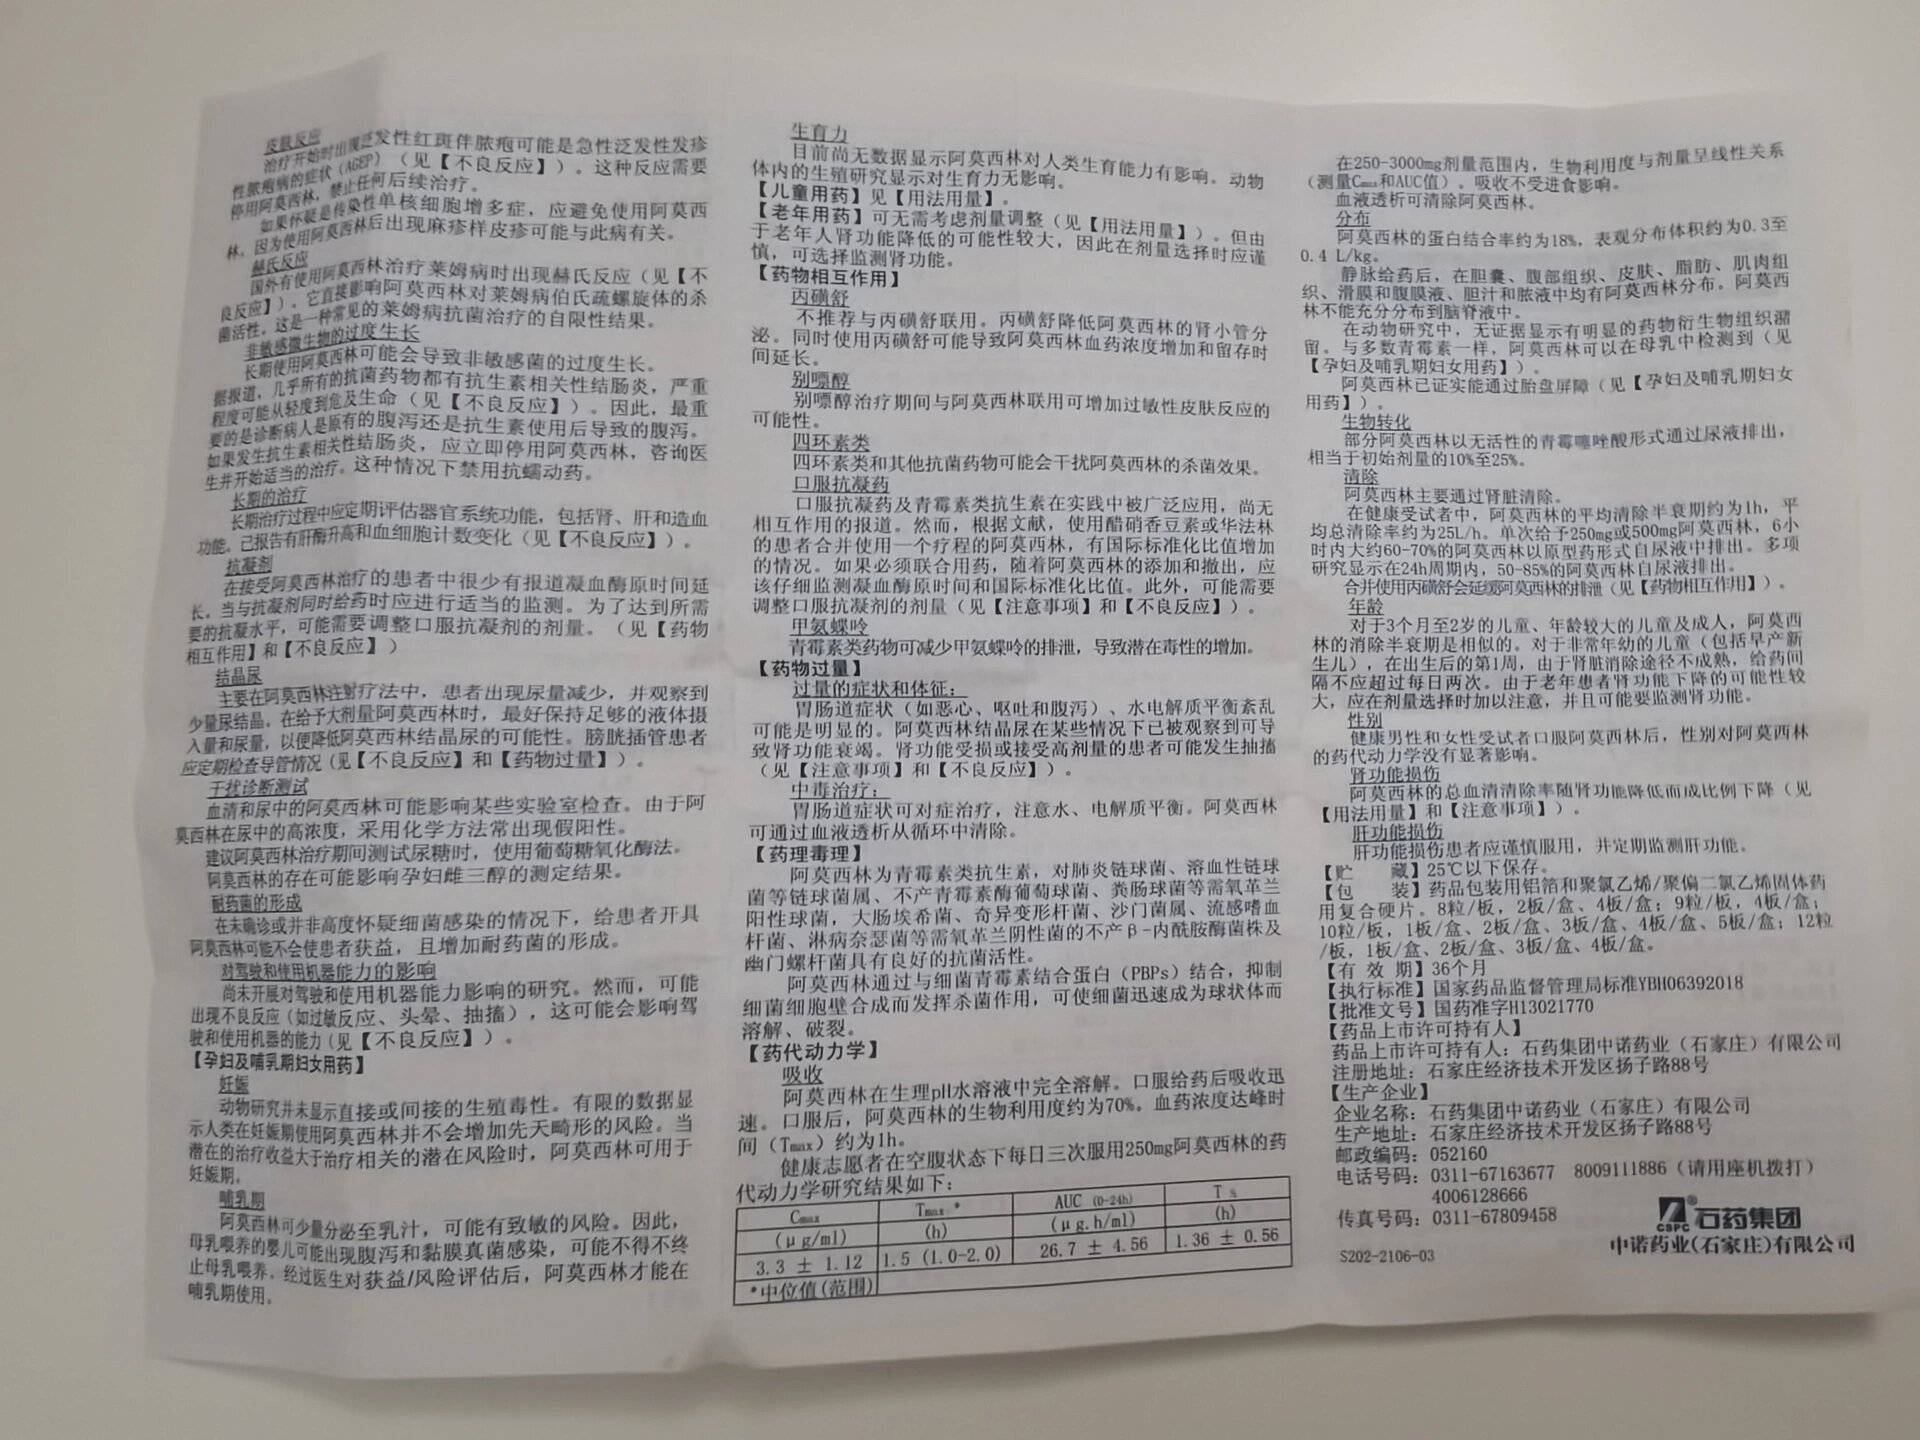 皮肤反应
治疗开始时出现泛发性红斑伴脓疱可能是急性泛发性发疹
性脓疱病的症状（AGEP）（见【不良反应】）。这种反应需要
停用阿莫西林，禁止任何后续治疗。
如果怀疑是传染性单核细胞增多症，应避免使用阿莫西
林，因为使用阿莫西林后出现麻疹样皮疹可能与此病有关。
赫氏反应
国外有使用阿莫西林治疗莱姆病时出现赫氏反应（见【不
良反应】）。它直接影响阿莫西林对莱姆病伯氏疏螺旋体的杀
菌活性。这是一种常见的莱姆病抗菌治疗的自限性结果。
非敏感微生物的过度生长
长期使用阿莫西林可能会导致非敏感菌的过度生长。
据报道，几乎所有的抗菌药物都有抗生素相关性结肠炎，严重
程度可能从轻度到危及生命（见【不良反应】）。因此，最重
要的是诊断病人是原有的腹泻还是抗生素使用后导致的腹泻。
如果发生抗生素相关性结肠炎，应立即停用阿莫西林，咨询医
生并开始适当的治疗。这种情况下禁用抗蠕动药。
长期的治疗
长期治疗过程中应定期评估器官系统功能，包括肾、肝和造血
功能。已报告有肝酶升高和血细胞计数变化（见【不良反应】）。
抗凝剂
在接受阿莫西林治疗的患者中很少有报道凝血酶原时间延
长。当与抗凝剂同时给药时应进行适当的监测。为了达到所需
要的抗凝水平，可能需要调整口服抗凝剂的剂量。（见【药物
相互作用】和【不良反应】）
结晶尿
主要在阿莫西林注射疗法中，患者出现尿量减少，并观察到
少量尿结晶。在给予大剂量阿莫西林时，最好保持足够的液体摄
入量和尿量，以便降低阿莫西林结晶尿的可能性。膀胱插管患者
应定期检查导管情况（见【不良反应】和【药物过量】）。
干扰诊断测试
血清和尿中的阿莫西林可能影响某些实验室检查。由于阿
莫西林在尿中的高浓度，采用化学方法常出现假阳性。
建议阿莫西林治疗期间测试尿糖时，使用葡萄糖氧化酶法。
阿莫西林的存在可能影响孕妇雌三醇的测定结果。
耐药菌的形成
在未确诊或并非高度怀疑细菌感染的情况下，给患者开具
阿莫西林可能不会使患者获益，且增加耐药菌的形成。
对驾驶和使用机器能力的影响
尚未开展对驾驶和使用机器能力影响的研究。然而，可能
出现不良反应（如过敏反应、头晕、抽搐），这可能会影响驾
驶和使用机器的能力（见【不良反应】）。
【孕妇及哺乳期妇女用药】
妊娠
动物研究并未显示直接或间接的生殖毒性。有限的数据显
示人类在妊娠期使用阿莫西林并不会增加先天畸形的风险。当
潜在的治疗收益大于治疗相关的潜在风险时，阿莫西林可用于
妊娠期。
哺乳期
阿莫西林可少量分泌至乳汁，可能有致敏的风险。因此，
母乳喂养的婴儿可能出现腹泻和黏膜真菌感染，可能不得不终
止母乳喂养。经过医生对获益/风险评估后，阿莫西林才能在
哺乳期使用。
生育力
目前尚无数据显示阿莫西林对人类生育能力有影响。动物
体内的生殖研究显示对生育力无影响。
【儿童用药】见【用法用量】。
【老年用药】可无需考虑剂量调整（见【用法用量】）。但由
于老年人肾功能降低的可能性较大，因此在剂量选择时应谨
慎，可选择监测肾功能。
【药物相互作用】
丙磺舒
不推荐与丙磺舒联用。丙磺舒降低阿莫西林的肾小管分
泌。同时使用丙磺舒可能导致阿莫西林血药浓度增加和留存时
间延长。
别嘌醇
别嘌醇治疗期间与阿莫西林联用可增加过敏性皮肤反应的
可能性。
四环素类
四环素类和其他抗菌药物可能会干扰阿莫西林的杀菌效果。
口服抗凝药
口服抗凝药及青霉素类抗生素在实践中被广泛应用，尚无
相互作用的报道。然而，根据文献，使用醋硝香豆素或华法林
的患者合并使用一个疗程的阿莫西林，有国际标准化比值增加
的情况。如果必须联合用药，随着阿莫西林的添加和撤出，应
该仔细监测凝血酶原时间和国际标准化比值。此外，可能需要
调整口服抗凝剂的剂量（见【注意事项】和【不良反应】）。
甲氨蝶呤
青霉素类药物可减少甲氨蝶呤的排泄，导致潜在毒性的增加。
【药物过量】
过量的症状和体征：
胃肠道症状（如恶心、呕吐和腹泻）、水电解质平衡紊乱
可能是明显的。阿莫西林结晶尿在某些情况下已被观察到可导
致肾功能衰竭。肾功能受损或接受高剂量的患者可能发生抽搐
（见【注意事项】和【不良反应】）。
中毒治疗：
胃肠道症状可对症治疗，注意水、电解质平衡。阿莫西林
可通过血液透析从循环中清除。
【药理毒理】
阿莫西林为青霉素类抗生素，对肺炎链球菌、溶血性链球
菌等链球菌属、不产青霉素酶葡萄球菌、粪肠球菌等需氧革兰
阳性球菌，大肠埃希菌、奇异变形杆菌、沙门菌属、流感嗜血
杆菌、淋病奈瑟菌等需氧革兰阴性菌的不产β-内酰胺酶菌株及
幽门螺杆菌具有良好的抗菌活性。
阿莫西林通过与细菌青霉素结合蛋白（PBPs）结合，抑制
细菌细胞壁合成而发挥杀菌作用，可使细菌迅速成为球状体而
溶解、破裂。
【药代动力学】
吸收
阿莫西林在生理pH水溶液中完全溶解。口服给药后吸收迅
速。口服后，阿莫西林的生物利用度约为70%。血药浓度达峰时
间（Tmax）约为1h。
健康志愿者在空腹状态下每日三次服用250mg阿莫西林的药
代动力学研究结果如下：
Cmax Tmax * AUC (0-24h) T ½
(μg/ml) (h) (μg.h/ml) (h)
3.3 ± 1.12 1.5 (1.0-2.0) 26.7 ± 4.56 1.36 ± 0.56
*中位值(范围)
在250-3000mg剂量范围内，生物利用度与剂量呈线性关系
（测量Cmax和AUC值）。吸收不受进食影响。
血液透析可清除阿莫西林。
分布
阿莫西林的蛋白结合率约为18%，表观分布体积约为0.3至
0.4 L/kg。
静脉给药后，在胆囊、腹部组织、皮肤、脂肪、肌肉组
织、滑膜和腹膜液、胆汁和脓液中均有阿莫西林分布。阿莫西
林不能充分分布到脑脊液中。
在动物研究中，无证据显示有明显的药物衍生物组织潴
留。与多数青霉素一样，阿莫西林可以在母乳中检测到（见
【孕妇及哺乳期妇女用药】）。
阿莫西林已证实能通过胎盘屏障（见【孕妇及哺乳期妇女
用药】）。
生物转化
部分阿莫西林以无活性的青霉噻唑酸形式通过尿液排出，
相当于初始剂量的10%至25%。
清除
阿莫西林主要通过肾脏清除。
在健康受试者中，阿莫西林的平均清除半衰期约为1h，平
均总清除率约为25L/h。单次给予250mg或500mg阿莫西林，6小
时内大约60-70%的阿莫西林以原型药形式自尿液中排出。多项
研究显示在24h周期内，50-85%的阿莫西林自尿液排出。
合并使用丙磺舒会延缓阿莫西林的排泄（见【药物相互作用】）。
年龄
对于3个月至2岁的儿童、年龄较大的儿童及成人，阿莫西
林的消除半衰期是相似的。对于非常年幼的儿童（包括早产新
生儿），在出生后的第1周，由于肾脏消除途径不成熟，给药间
隔不应超过每日两次。由于老年患者肾功能下降的可能性较
大，应在剂量选择时加以注意，并且可能要监测肾功能。
性别
健康男性和女性受试者口服阿莫西林后，性别对阿莫西林
的药代动力学没有显著影响。
肾功能损伤
阿莫西林的总血清清除率随肾功能降低而成比例下降（见
【用法用量】和【注意事项】）。
肝功能损伤
肝功能损伤患者应谨慎服用，并定期监测肝功能。
【贮 藏】25℃以下保存。
【包 装】药品包装用铝箔和聚氯乙烯/聚偏二氯乙烯固体药
用复合硬片。8粒/板，2板/盒、4板/盒；9粒/板，4板/盒；
10粒/板，1板/盒、2板/盒、3板/盒、4板/盒、5板/盒；12粒
/板，1板/盒、2板/盒、3板/盒、4板/盒。
【有 效 期】36个月
【执行标准】国家药品监督管理局标准YBH06392018
【批准文号】国药准字H13021770
【药品上市许可持有人】
药品上市许可持有人：石药集团中诺药业（石家庄）有限公司
注册地址：石家庄经济技术开发区扬子路88号
【生产企业】
企业名称：石药集团中诺药业（石家庄）有限公司
生产地址：石家庄经济技术开发区扬子路88号
邮政编码：052160
电话号码：0311-67163677 8009111886（请用座机拨打）
4006128666
传真号码：0311-67809458
CSPC ® 石药集团
中诺药业(石家庄)有限公司
S202-2106-03